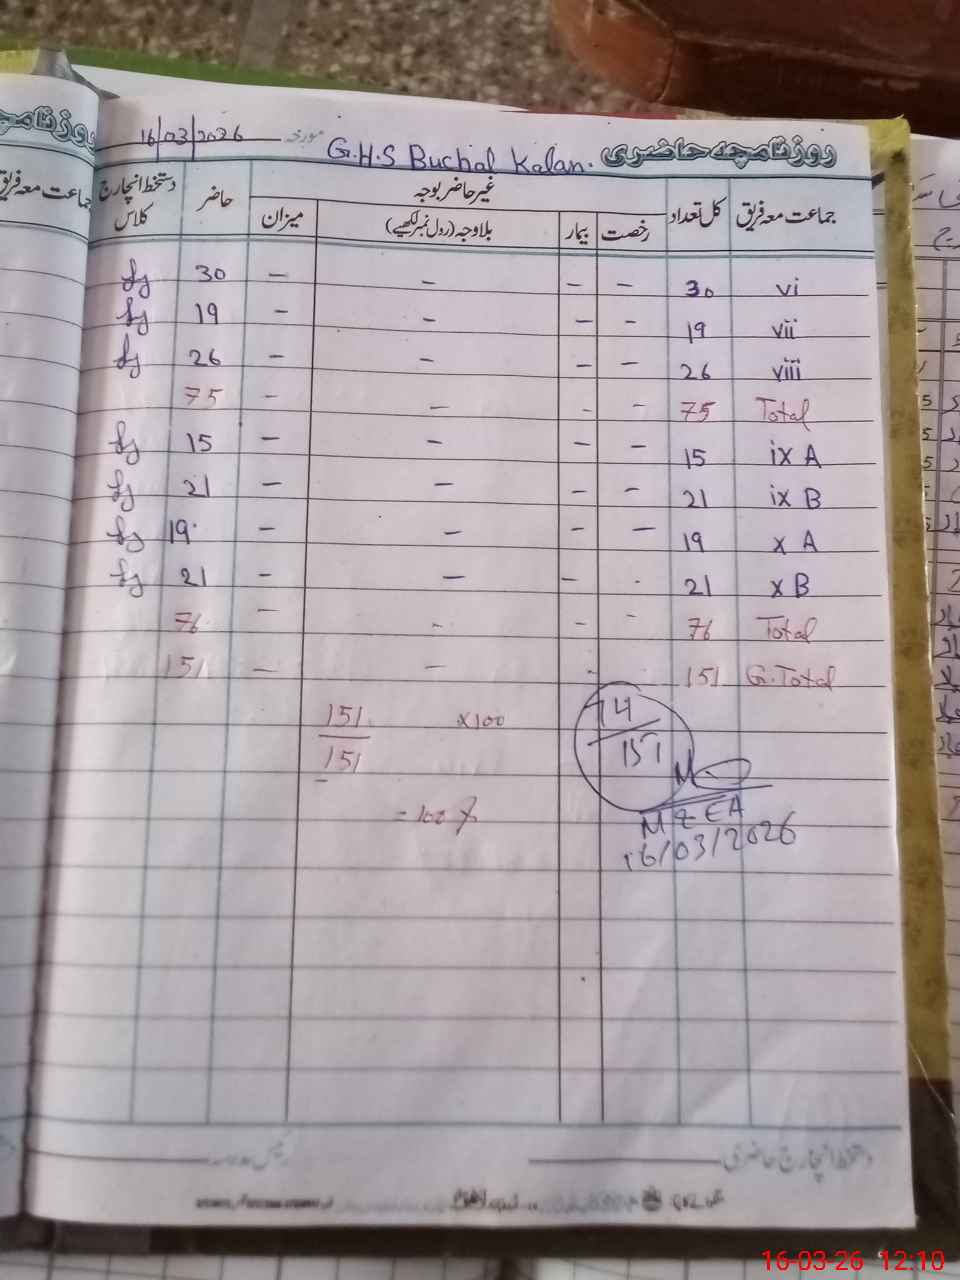 روزنامچہ حاضری G.H.S Buchal Kalan. مورخہ 16/03/2026
جماعت معہ فریق کل تعداد غیر حاضر بوجہ حاضر دستخط انچارج کلاس
رخصت بیمار بلاوجہ (رول نمبر لکھیے) میزان
vi 30 - - - - 30
vii 19 - - - - 19
viii 26 - - - - 26
Total 75 - - - - 75
ix A 15 - - - - 15
ix B 21 - - - - 21
x A 19 - - - - 19
x B 21 - - - - 21
Total 76 - - - - 76
G.Total 151 - - - 151
151/151 x100
= 100 %
14/151
MZEA
16/03/2026
دستخط انچارج حاضری رئیس مدرسہ
16-03-26 12:10